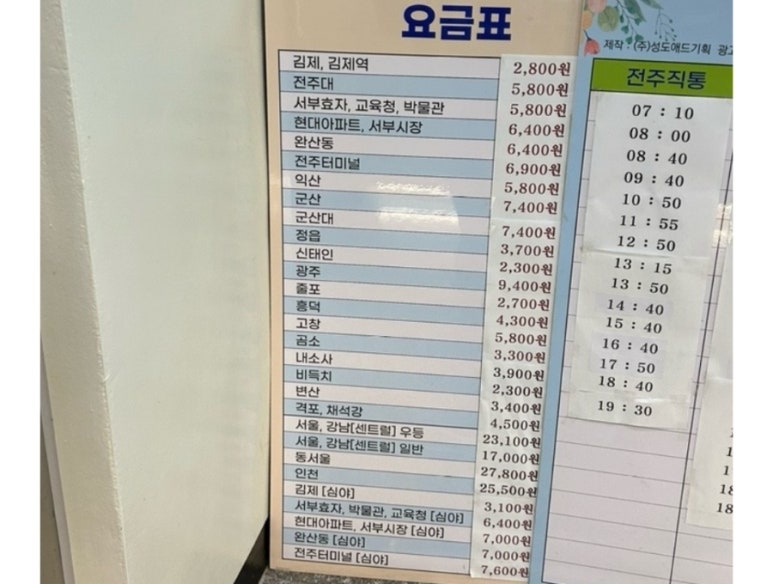 요금표
김제, 김제역 2,800원
전주대 5,800원
서부효자, 교육청, 박물관 5,800원
현대아파트, 서부시장 6,400원
완산동 6,400원
전주터미널 6,900원
익산 5,800원
군산 7,400원
군산대 7,400원
정읍 3,700원
신태인 2,300원
광주 9,400원
줄포 2,700원
흥덕 4,300원
고창 5,800원
곰소 3,300원
내소사 3,900원
비득치 2,300원
변산 3,400원
격포, 채석강 4,500원
서울, 강남[센트럴] 우등 23,100원
서울, 강남[센트럴] 일반 17,000원
동서울 27,800원
인천 25,500원
김제 [심야] 3,100원
서부효자, 박물관, 교육청 [심야] 6,400원
현대아파트, 서부시장 [심야] 7,000원
완산동 [심야] 7,000원
전주터미널 [심야] 7,600원
제작 : (주)성도애드기획 광고
전주직통
07 : 10
08 : 00
08 : 40
09 : 40
10 : 50
11 : 55
12 : 50
13 : 15
13 : 50
14 : 40
15 : 40
16 : 40
17 : 50
18 : 40
19 : 30